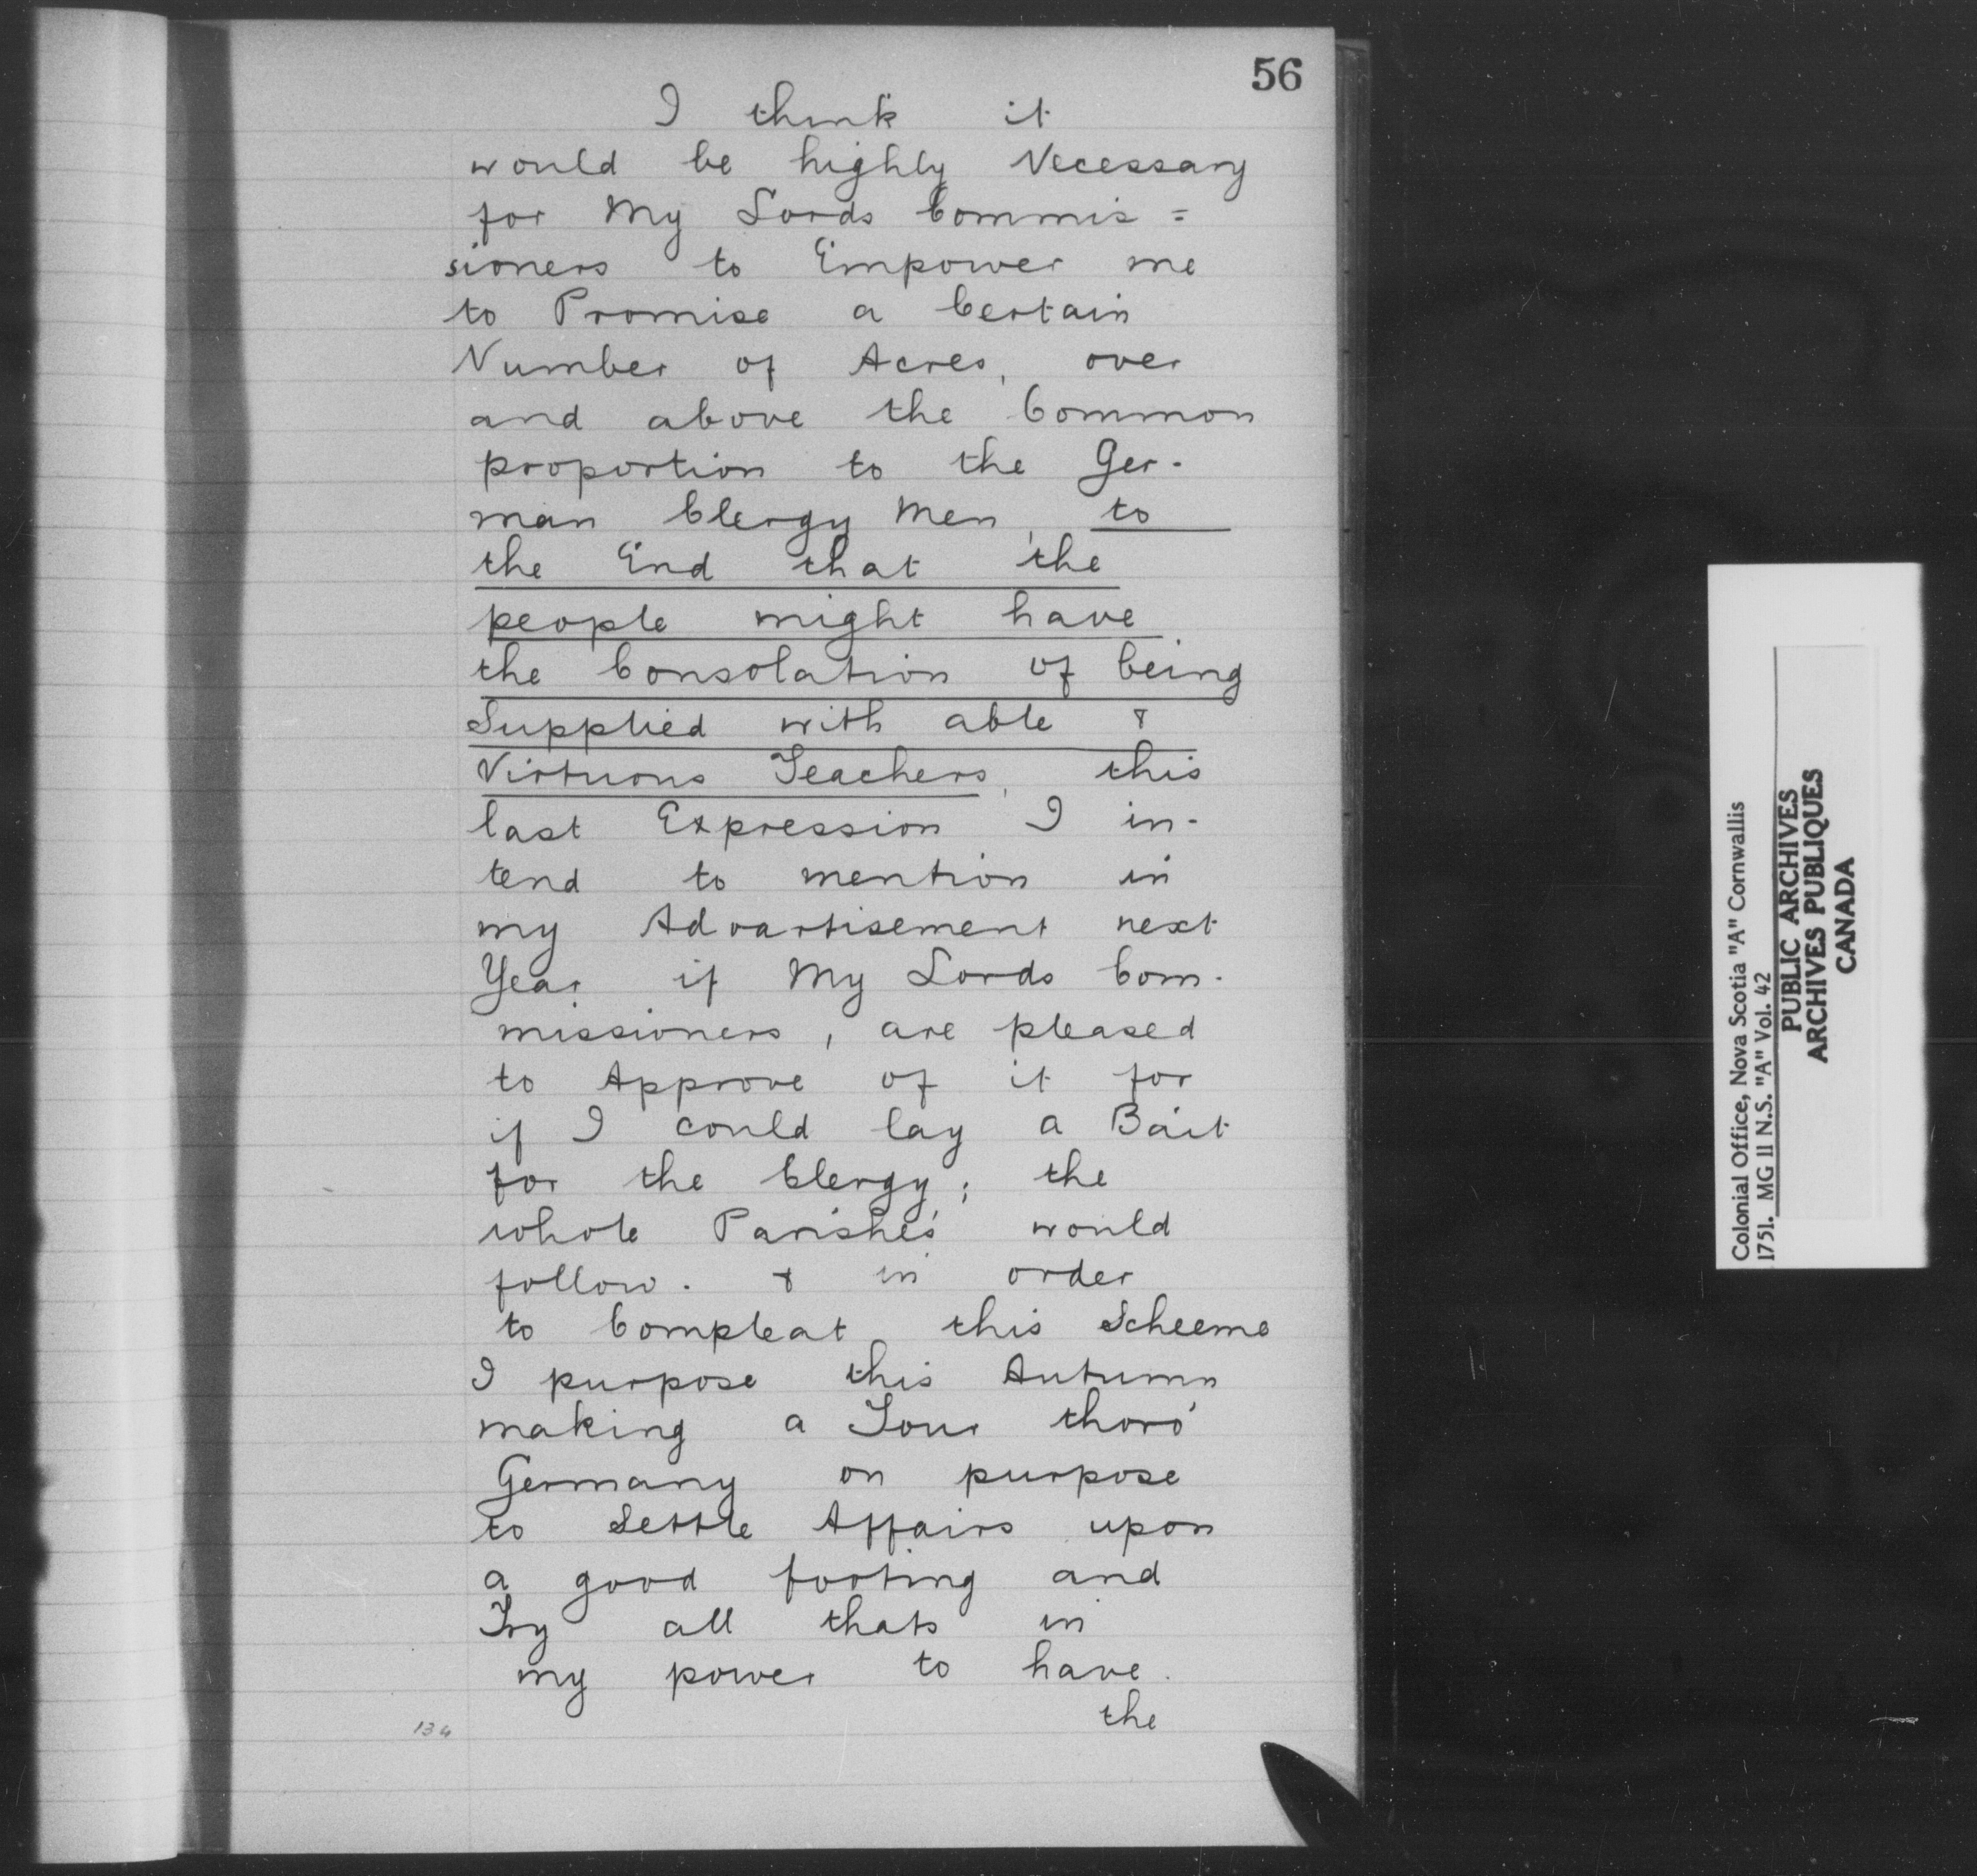 56
I think it
would be highly Necessary
for My Lords Commis =
sioners to Empower me
to Promise a Certain
Number of Acres, over
and above the Common
proportion to the Ger-
man Clergy Men, to
the End that the
people might have
the Consolation of being
Supplied with able &
Virtuous Teachers, this
last Expression I in-
tend to mention in
my Advartisement next
Year if My Lords Com-
missioners, are pleased
to Approve of it for
if I could lay a Bait
for the Clergy; the
whole Parishes would
follow. & in order
to Compleat this Scheeme
I purpose this Autumn
making a Tour thoro'
Germany on purpose
to Settle Affairs upon
a good footing and
Try all thats in
my power to have.
the
134
Colonial Office, Nova Scotia "A" Cornwallis
1751. MG 11 N.S. "A" Vol. 42
PUBLIC ARCHIVES
ARCHIVES PUBLIQUES
CANADA